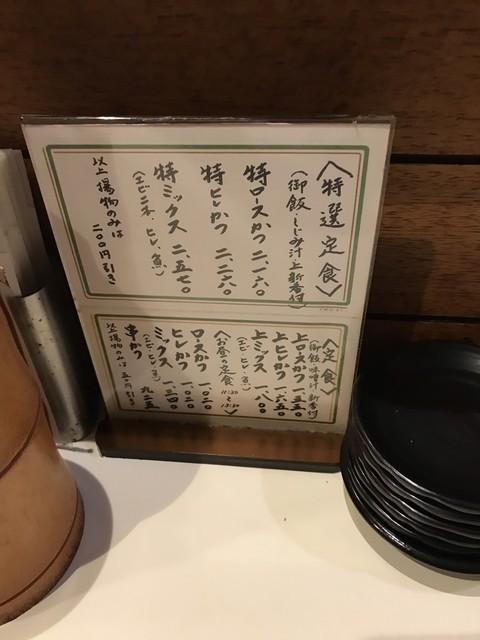 〈特選定食〉
(御飯・しじみ汁・上新香付)
特ロースかつ 二、一六〇
特ヒレかつ 二、二六〇
特ミックス 二、五七〇
(エビ二本、ヒレ、魚)
以上揚物のみは
二〇〇円引き
〈定食〉
(御飯・味噌汁・新香付)
上ロースかつ 一、五五〇
上ヒレかつ 一、六五〇
上ミックス 一、八〇〇
(エビ・ヒレ・魚)
〈お昼の定食 11:30〜13:30〉
ロースかつ 一、〇二〇
ヒレかつ 一、〇二〇
ミックス 一、二四〇
(エビ・ヒレ・魚)
串かつ 九二五
以上揚物のみは 五〇円引き